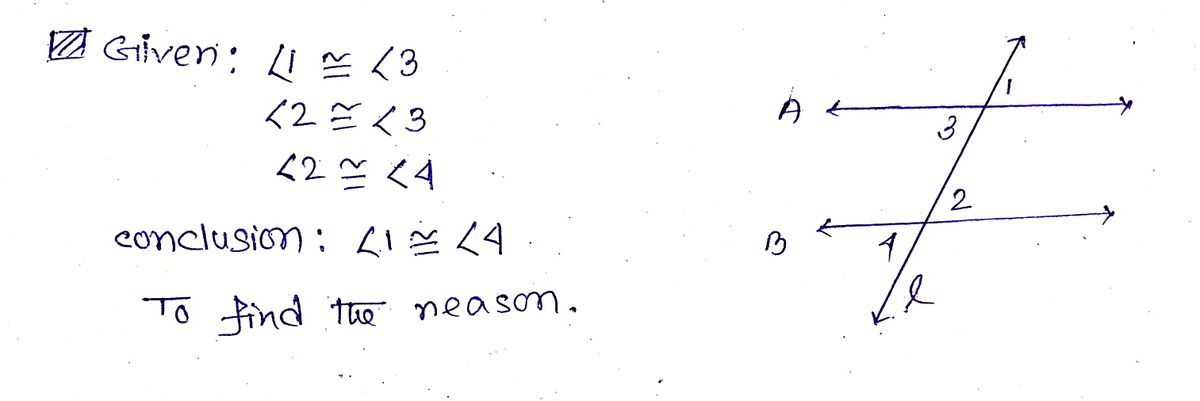 Given: ∠1 ≅ ∠3
∠2 ≅ ∠3
∠2 ≅ ∠4
conclusion: ∠1 ≅ ∠4.
To find the reason.
A
1
3
2
B
4
l